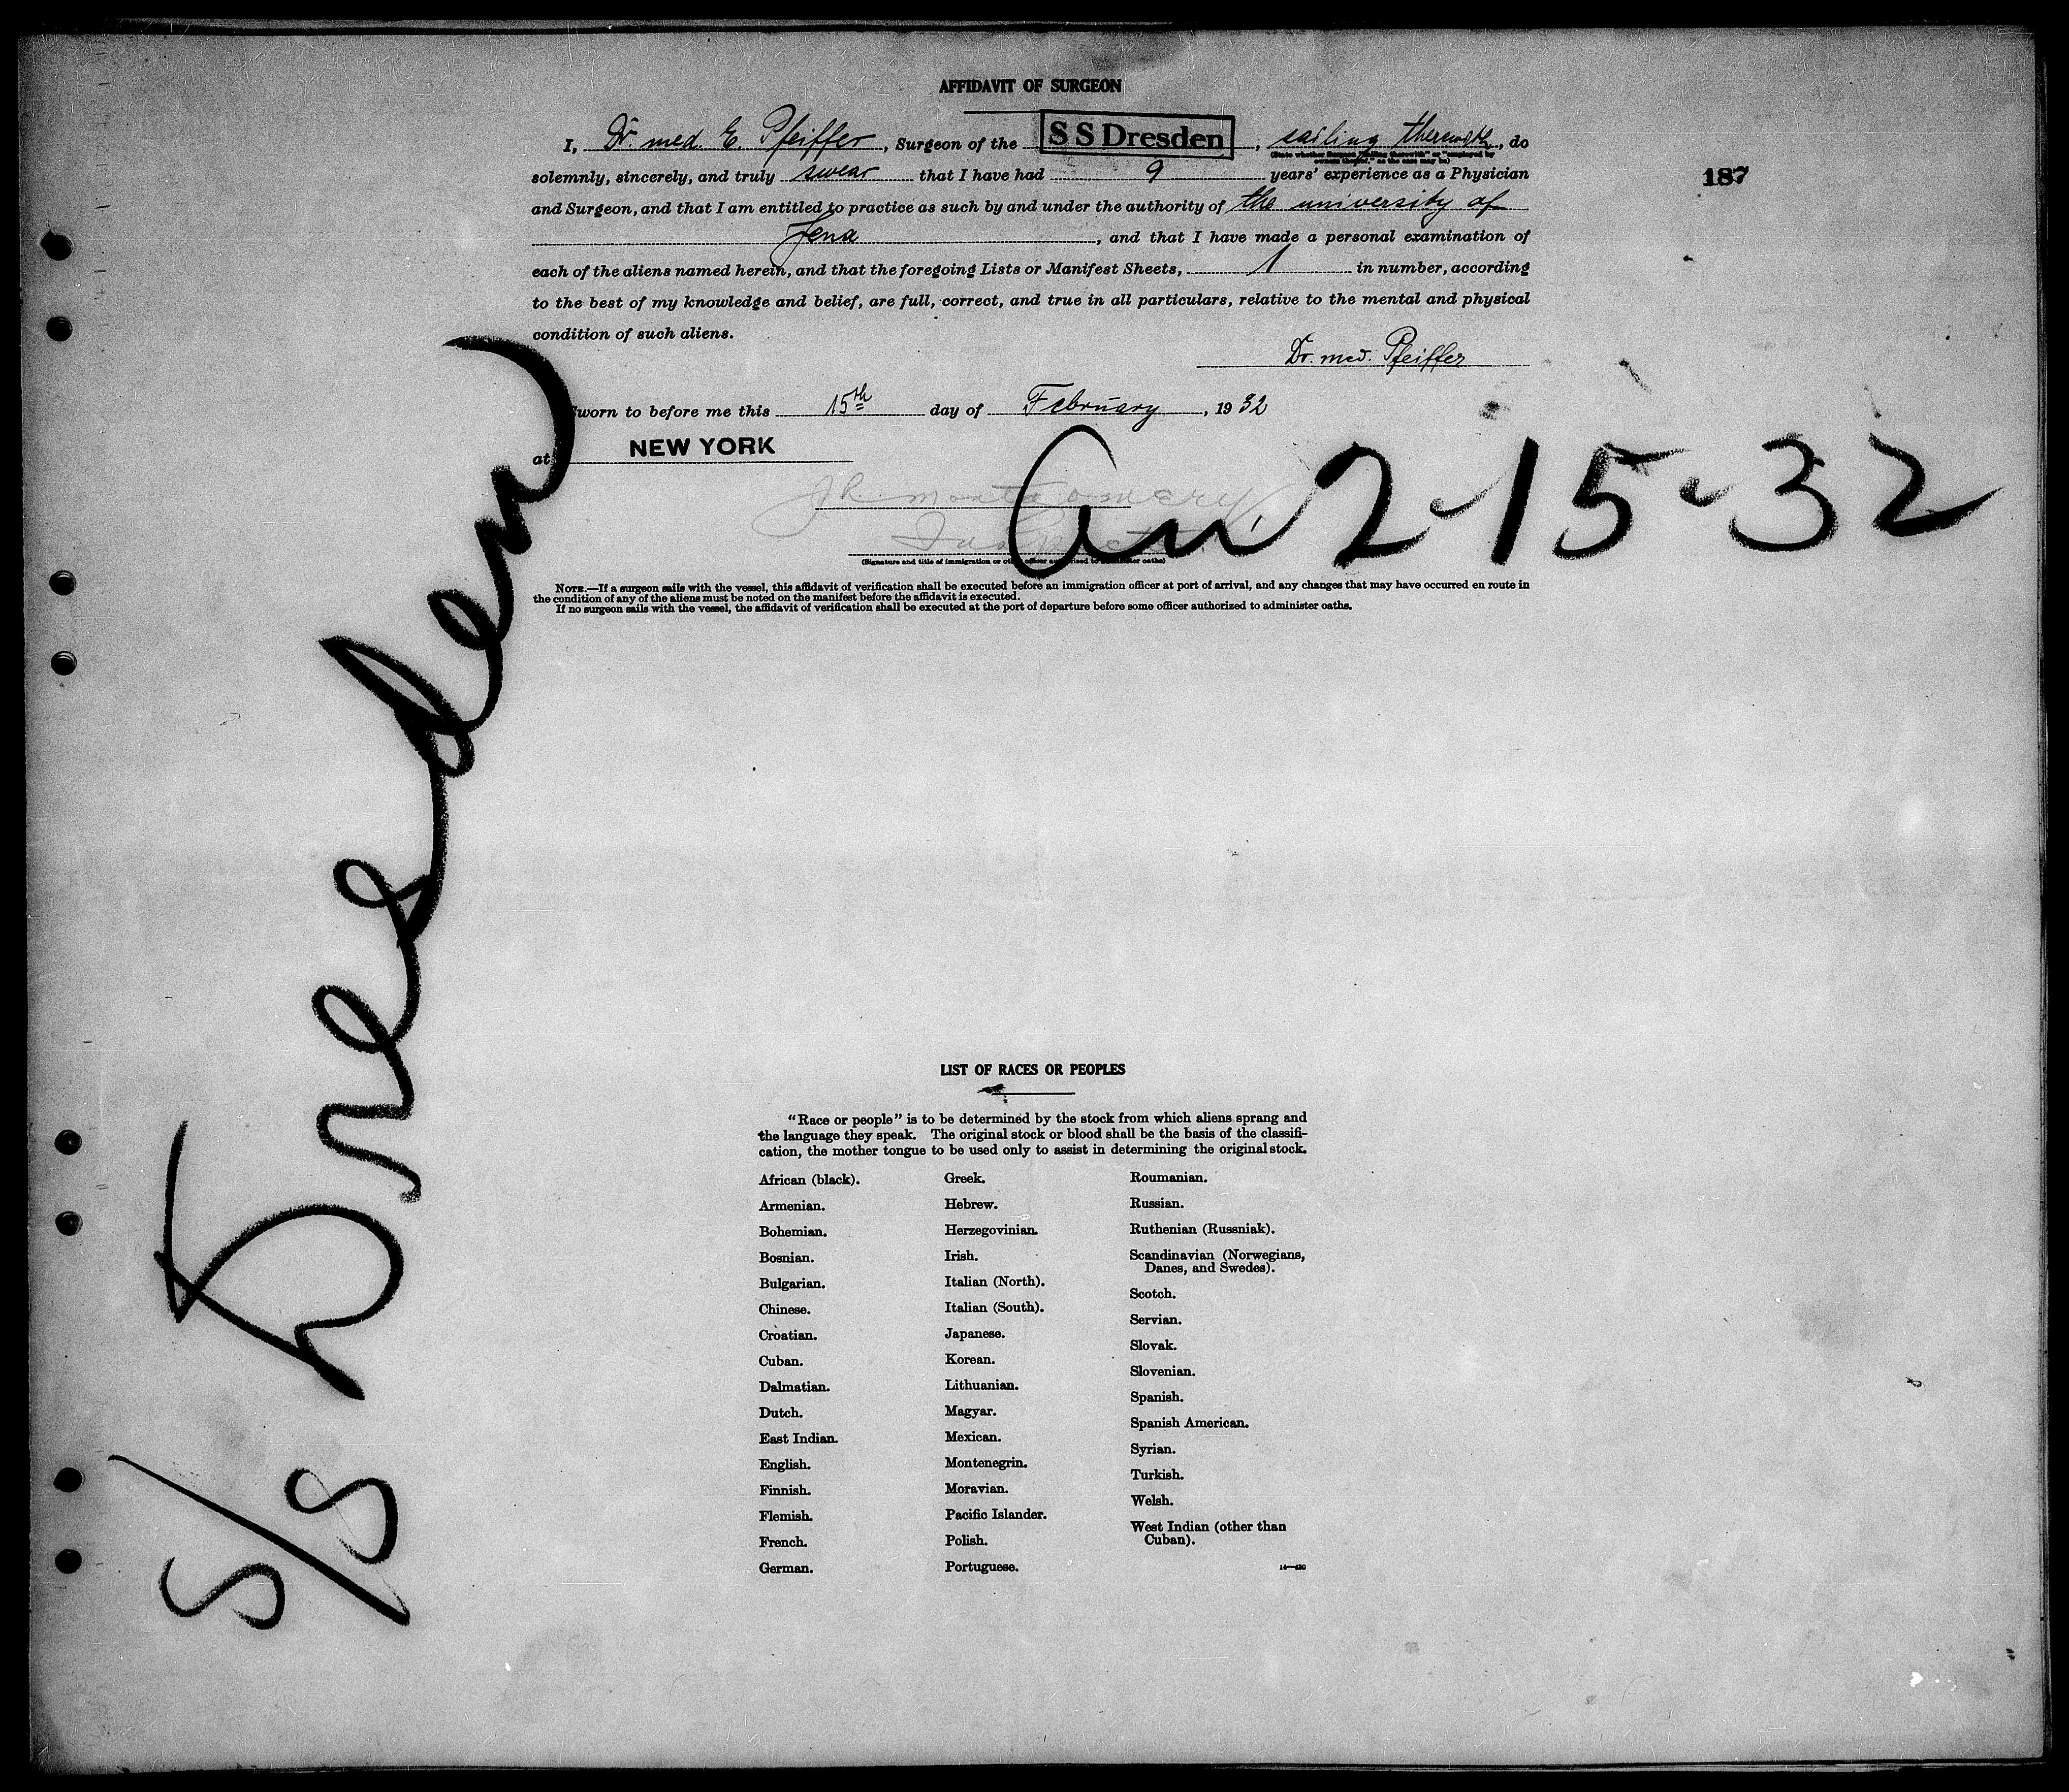 AFFIDAVIT OF SURGEON
I, Dr. med. E. Pfeiffer, Surgeon of the SS Dresden, sailing therewith, do
(State whether Surgeon "sailing therewith" or "employed by
owners thereof," as the case may be)
solemnly, sincerely, and truly swear that I have had 9 years' experience as a Physician
187
and Surgeon, and that I am entitled to practice as such by and under the authority of the university of
Jena, and that I have made a personal examination of
each of the aliens named herein, and that the foregoing Lists or Manifest Sheets, 1 in number, according
to the best of my knowledge and belief, are full, correct, and true in all particulars, relative to the mental and physical
condition of such aliens.
Dr. med. Pfeiffer
Sworn to before me this 15th day of February, 1932
at NEW YORK
J R Montgomery
Inspector
2-15-32
(Signature and title of immigration or other officer authorized to administer oaths)
NOTE.—If a surgeon sails with the vessel, this affidavit of verification shall be executed before an immigration officer at port of arrival, and any changes that may have occurred en route in
the condition of any of the aliens must be noted on the manifest before the affidavit is executed.
If no surgeon sails with the vessel, the affidavit of verification shall be executed at the port of departure before some officer authorized to administer oaths.
S/S Dresden
LIST OF RACES OR PEOPLES
"Race or people" is to be determined by the stock from which aliens sprang and
the language they speak. The original stock or blood shall be the basis of the classifi-
cation, the mother tongue to be used only to assist in determining the original stock.
African (black).
Armenian.
Bohemian.
Bosnian.
Bulgarian.
Chinese.
Croatian.
Cuban.
Dalmatian.
Dutch.
East Indian.
English.
Finnish.
Flemish.
French.
German.
Greek.
Hebrew.
Herzegovinian.
Irish.
Italian (North).
Italian (South).
Japanese.
Korean.
Lithuanian.
Magyar.
Mexican.
Montenegrin.
Moravian.
Pacific Islander.
Polish.
Portuguese.
Roumanian.
Russian.
Ruthenian (Russniak).
Scandinavian (Norwegians,
Danes, and Swedes).
Scotch.
Servian.
Slovak.
Slovenian.
Spanish.
Spanish American.
Syrian.
Turkish.
Welsh.
West Indian (other than
Cuban).